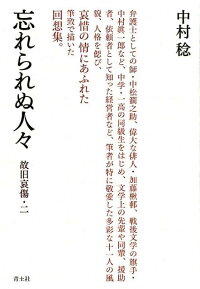 中村 稔
忘れられぬ人々
故旧哀傷・二
弁護士としての師・中松澗之助、偉大な俳人・加藤楸邨、戦後文学の旗手・
中村眞一郎など、中学・一高の同級生をはじめ、文学上の先輩や同輩、援助
者、依頼者として知った経営者など、筆者が特に敬愛した多彩な十一人の風
貌、人格を偲び、
哀惜の情にあふれた
筆致で描いた
回想集。
青土社